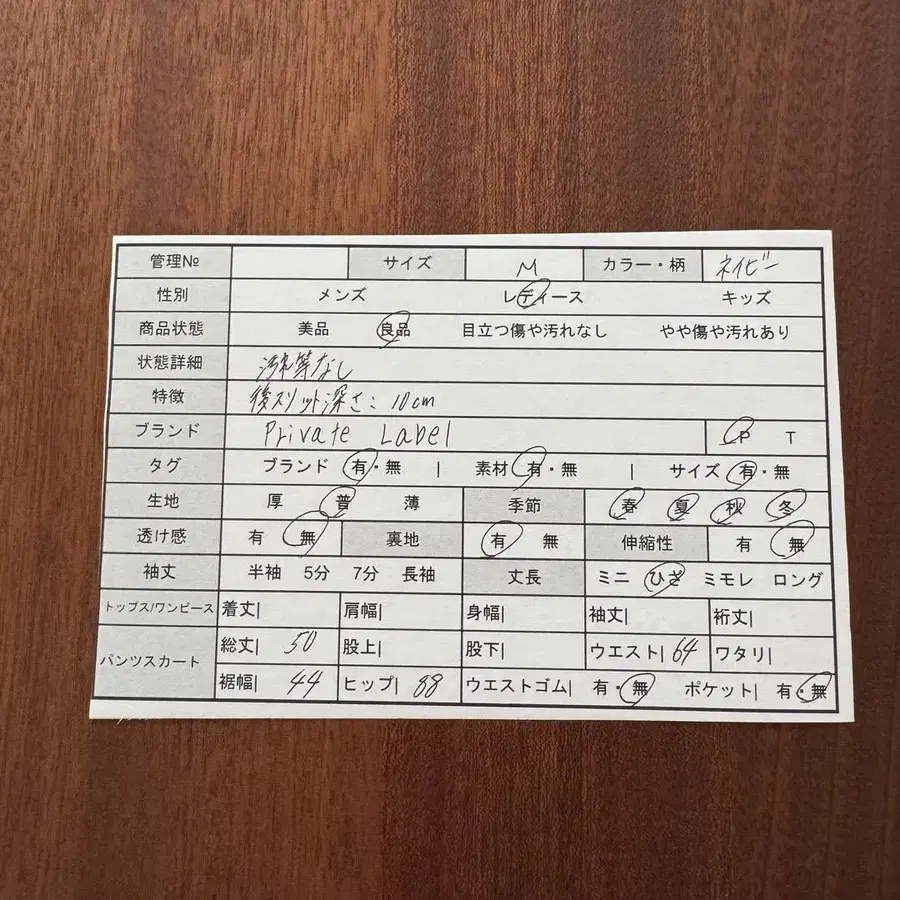 管理№ サイズ M カラー・柄 ネイビー
性別 メンズ レディース キッズ
商品状態 美品 良品 目立つ傷や汚れなし やや傷や汚れあり
状態詳細 汚れ等なし
特徴 後スリット深さ：10cm
ブランド Private Label P T
タグ ブランド 有・無 | 素材 有・無 | サイズ 有・無
生地 厚 普 薄 季節 春 夏 秋 冬
透け感 有 無 裏地 有 無 伸縮性 有 無
袖丈 半袖 5分 7分 長袖 丈長 ミニ ひざ ミモレ ロング
トップス/ワンピース 着丈| 肩幅| 身幅| 袖丈| 裄丈|
パンツスカート 総丈| 50 股上| 股下| ウエスト| 64 ワタリ|
裾幅| 44 ヒップ| 88 ウエストゴム| 有・無 ポケット| 有・無